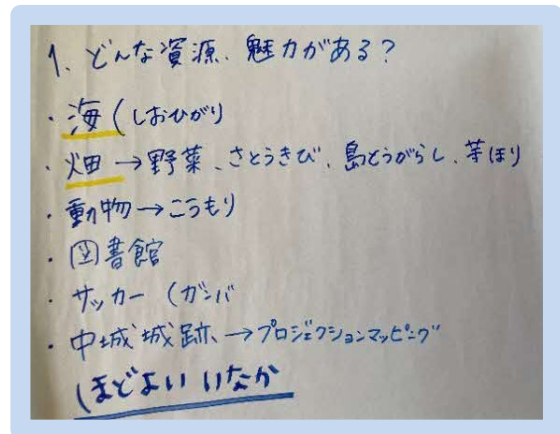 1、どんな資源、魅力がある？
・海（しおひがり
・畑→野菜、さとうきび、島とうがらし、芋ほり
・動物→こうもり
・図書館
・サッカー（ガンバ
・中城城跡、→プロジェクションマッピング
（ほどよい いなか